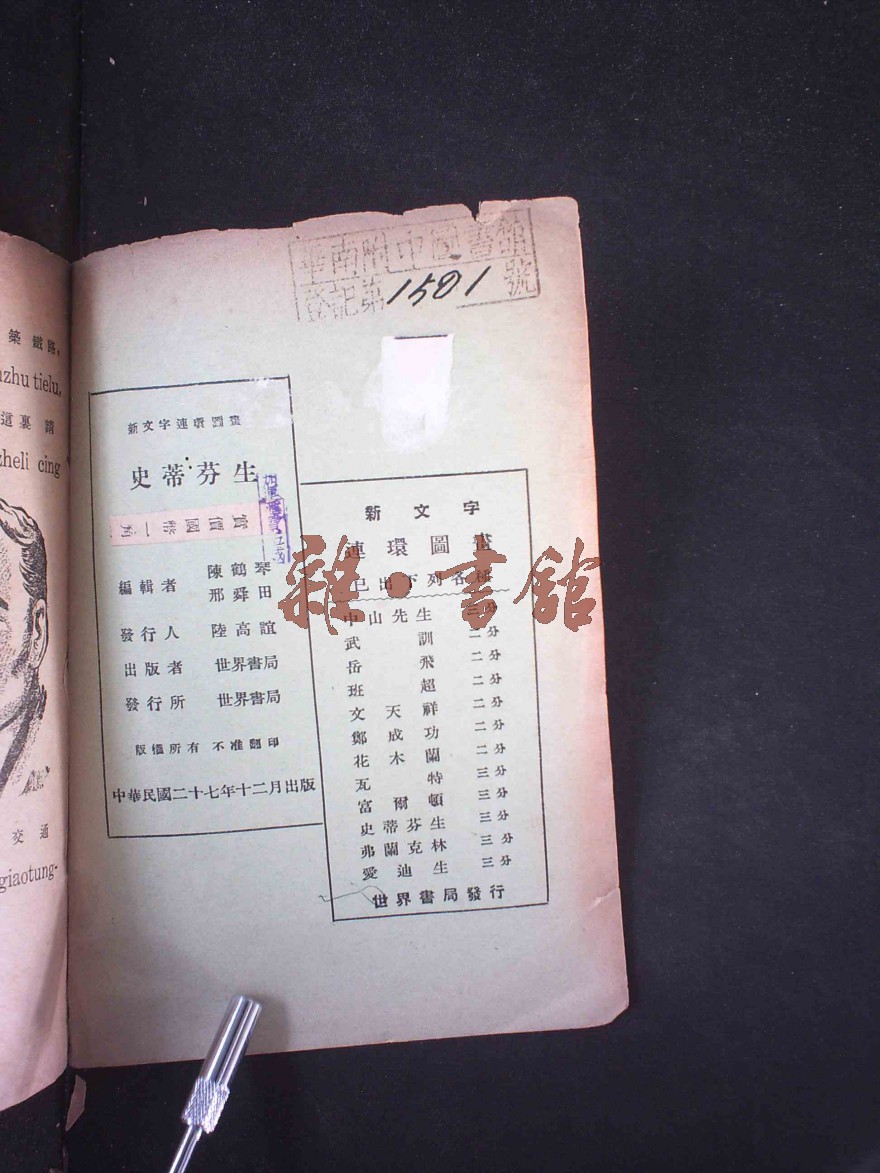 華南附中圖書館
登記第1501號
築鐵路,
uzhu tielu,
這裏 請
zheli cing
交通
giaotung-
新文字連環圖畫
史蒂芬生
實價國幣一角
編輯者 陳鶴琴
邢舜田
發行人 陸高誼
出版者 世界書局
發行所 世界書局
版權所有 不准翻印
中華民國二十七年十二月出版
新文字
連環圖畫
已出下列各種
中山先生 三分
武訓 二分
岳飛 二分
班超 二分
文天祥 二分
鄭成功 二分
花木蘭 二分
瓦特 三分
富爾頓 三分
史蒂芬生 三分
弗蘭克林 三分
愛迪生 三分
世界書局發行
雜·書館